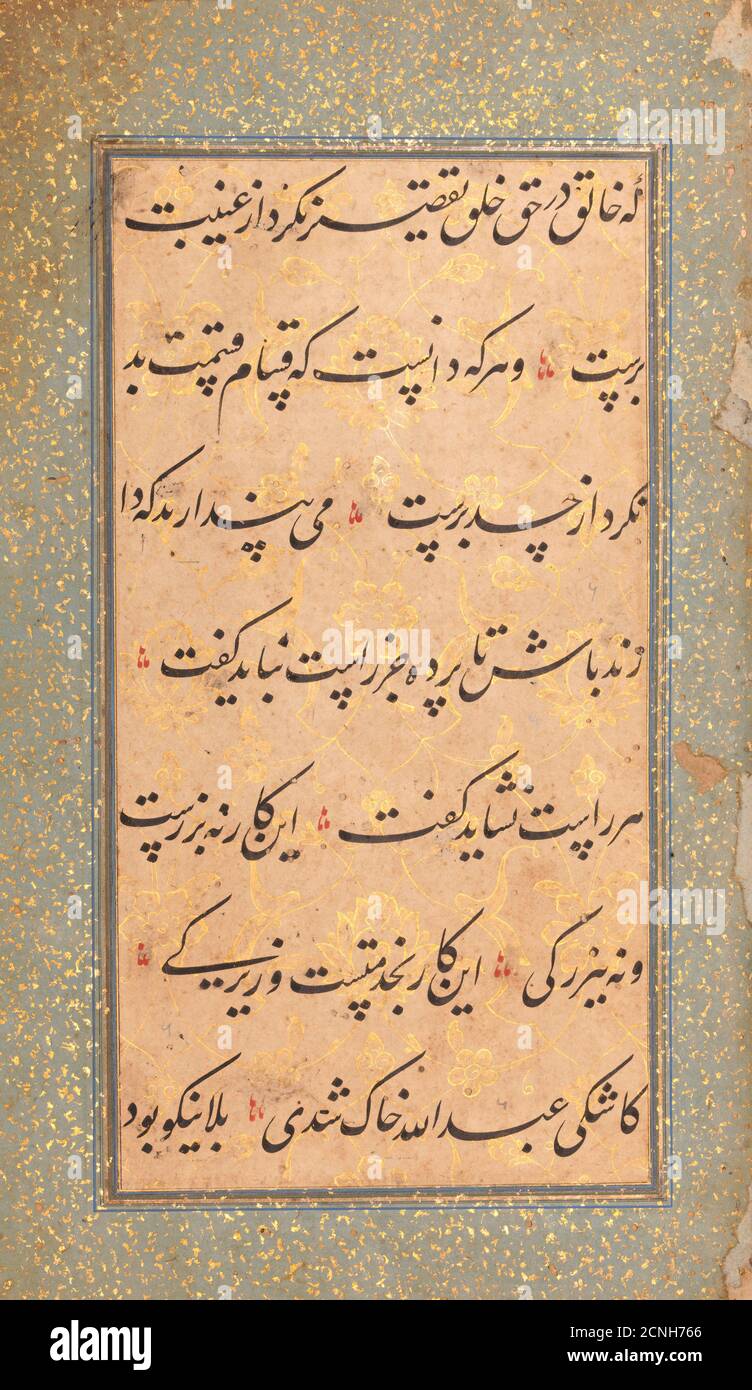 که خالق در حق خلق تقصیر نکرد از غیبت
برست وهرکه دانست که قسام قسمت بد
نکرد از حسد برست می پندارند که دا
رند باش تا پرده بر
جز راست نباید گفت
هر راست نشاید گفت این کار نه بزرست
ونه بزرگی این کار بخدمتست وزیرکی
کاشکی عبدالله خاک شدی بلا نیکو بود
alamy
Image ID: 2CNH766
www.alamy.com